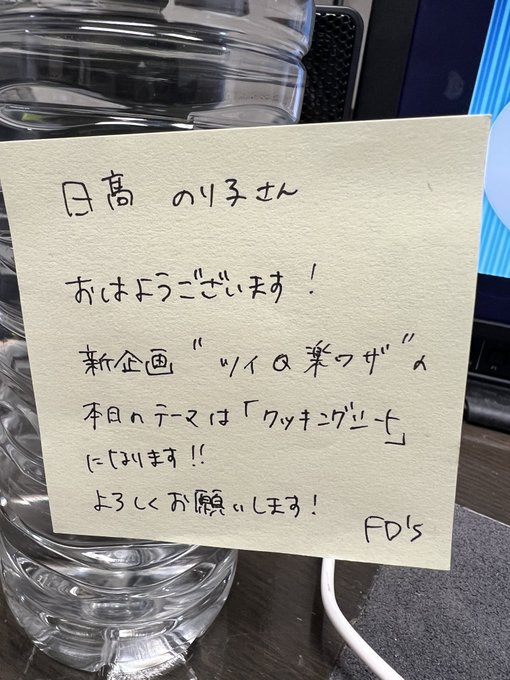 日髙 のり子さん
おはようございます!
新企画"ツイQ楽ワザ"の
本日のテーマは「クッキングシート」
になります!!
よろしくお願いします!
FD's